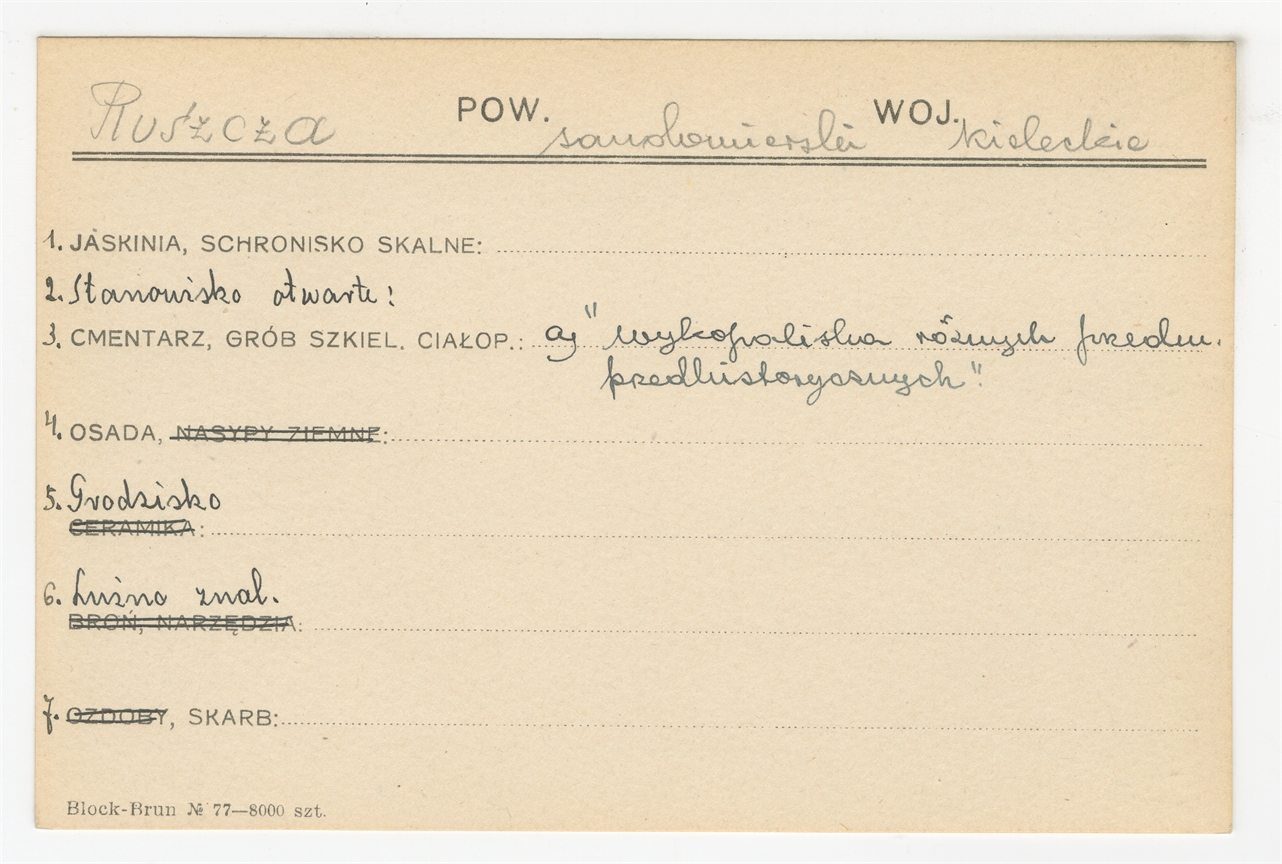 Ruszcza POW. sandomierski WOJ. kieleckie
1. JASKINIA, SCHRONISKO SKALNE:
2. Stanowisko otwarte:
3. CMENTARZ, GRÓB SZKIEL. CIAŁOP.: a) "wykopaliska różnych przedm.
przedhistorycznych"
4. OSADA, NASYPY ZIEMNE:
5. Grodzisko
CERAMIKA:
6. Luźno znal.
BROŃ, NARZĘDZIA:
7. OZDOBY, SKARB:
Block-Brun № 77—8000 szt.